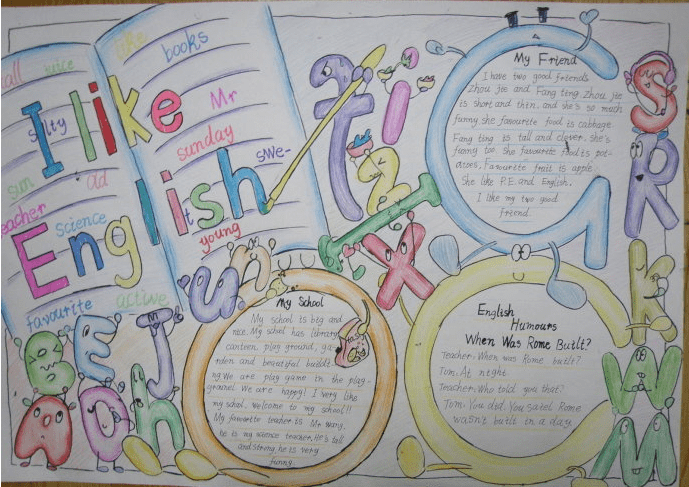 I like
English
tall juice
like books
salty
Mr
sunday
sun
ad
swe-
teacher
science
it
young
favourite active
My Friend
I have two good friends
Zhou jie and Fang ting Zhou jie
is short and thin. and she's so much
funny she favourite food is cabbage
Fang ting is tall and clever. she's
funny too. She favourite food is pot-
atoes, Favourite fruit is apple
She like P.E. and English.
I like my two good
friend.
My School
My school is big and
nice. My school has library
canteen, play ground, ga-
rden and beautiful buildi
ng We are play game in the play-
ground. We are happy! I very like
my school. welcome to my school!!
My favourite teacher is Mr Wang,
he is my science teacher. He's tall
and strong, he is very
funny.
English
Humours
When Was Rome Built?
Teacher: When was Rome built?
Tom: At night
Teacher: Who told you that?
Tom: You did. You saied Rome
wasn't built in a day.
t i z I x
u n
S R K W M
B E J
A O h